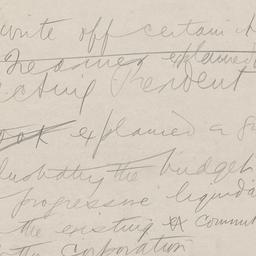 write off certain
Treasurer explained
Acting President
Cook explained a
illustrating the budget
progressive liquida
the existing commit
the Corporation